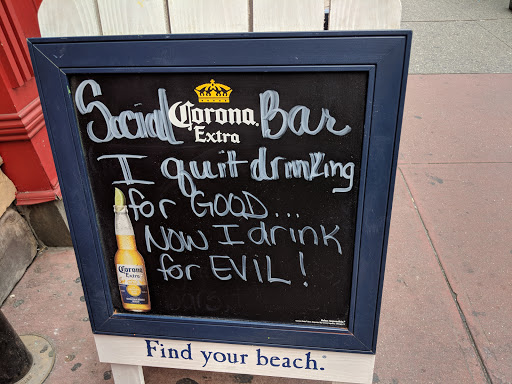 Social Corona. Bar
Extra
I quit drinking
for GOOD...
NOW I drink
for EVIL!
Corona
Extra
Find your beach.